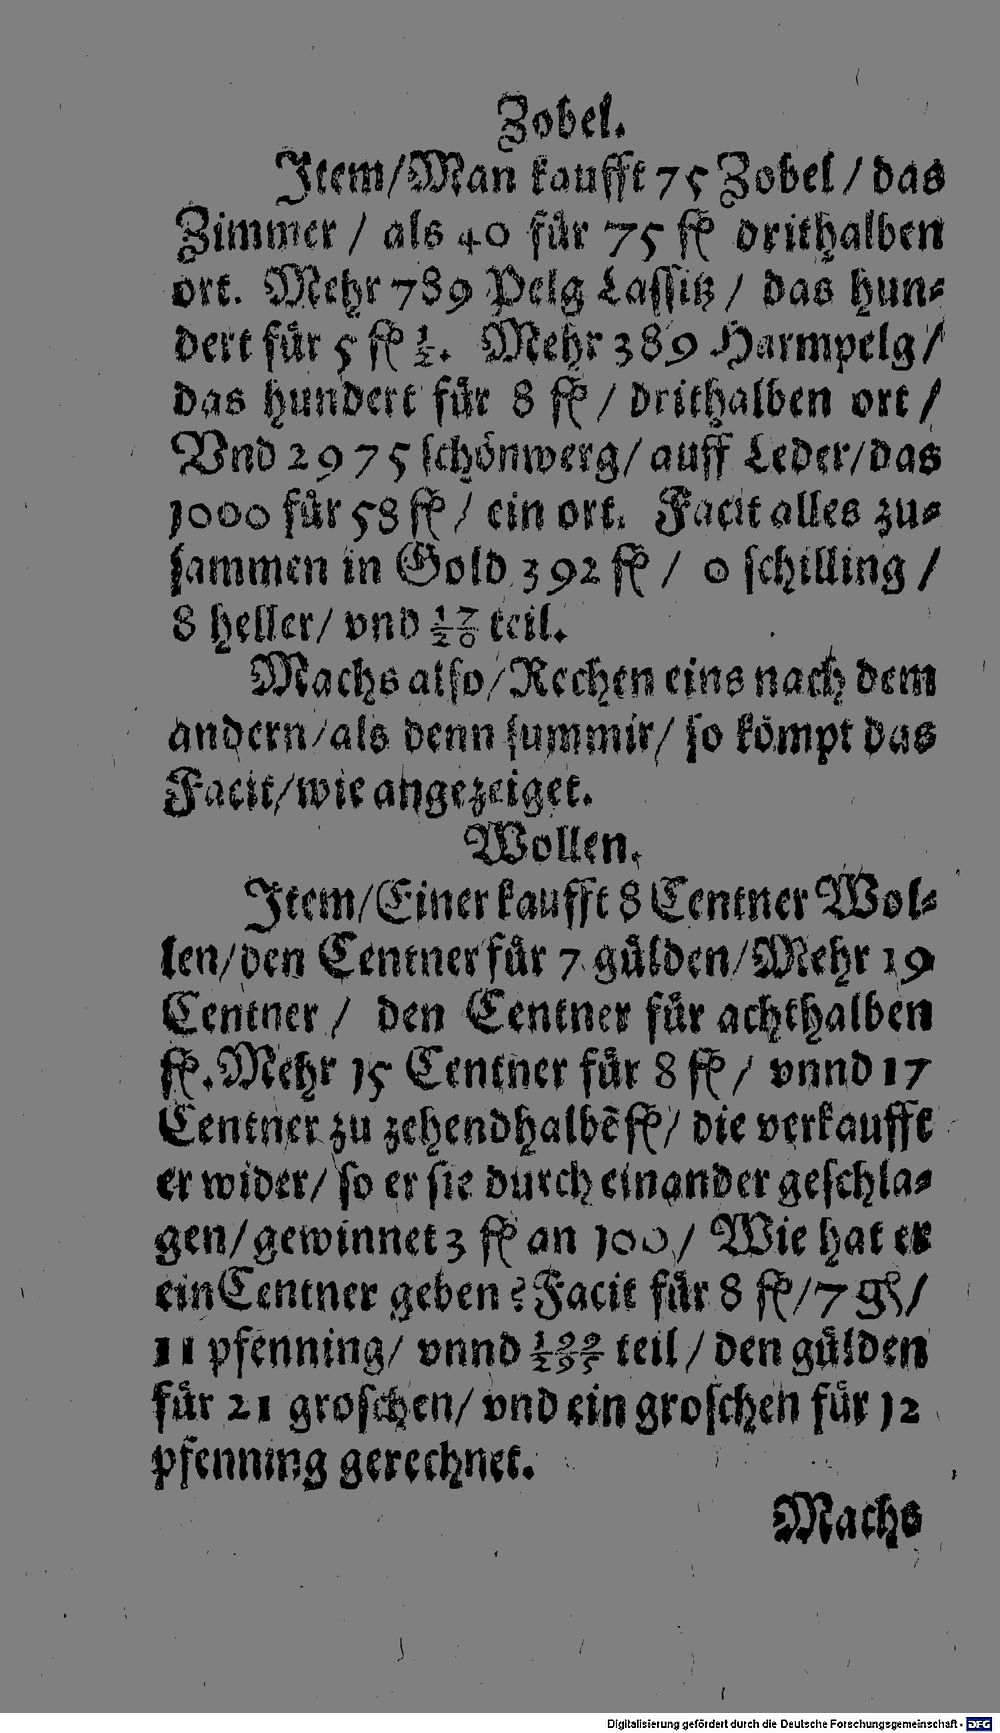 Zobel.
Item/Man kaufft 75 Zobel / das
Zimmer / als 40 für 75 fl drithalben
ort. Mehr 789 Pelg Lassitz / das hun⸗
dert für 5 fl ½. Mehr 389 Harmpelg/
das hundert für 8 fl / drithalben ort /
Vnd 2975 schönwerg/ auff Leder/das
1000 für 58 fl / ein ort. Facit alles zu⸗
sammen in Gold 392 fl / 0 schilling /
8 heller/ vnd 17/20 teil.
Machs also/Rechen eins nach dem
andern/als denn summir/ so kömpt das
Facit/wie angezeiget.
Wollen.
Item/Einer kaufft 8 Centner Wol⸗
len/den Centner für 7 gülden/Mehr 19
Centner / den Centner für achthalben
fl. Mehr 15 Centner für 8 fl / vnnd 17
Centner zu zehendhalbẽ fl/ die verkaufft
er wider/ so er sie durch einander geschla⸗
gen/gewinnet 3 fl an 100/ Wie hat er
ein Centner geben? Facit für 8 fl/7 gl/
11 pfenning/ vnnd 199/295 teil/ den gülden
für 21 groschen/ vnd ein groschen für 12
pfenning gerechnet.
Machs
Digitalisierung gefördert durch die Deutsche Forschungsgemeinschaft - DFG